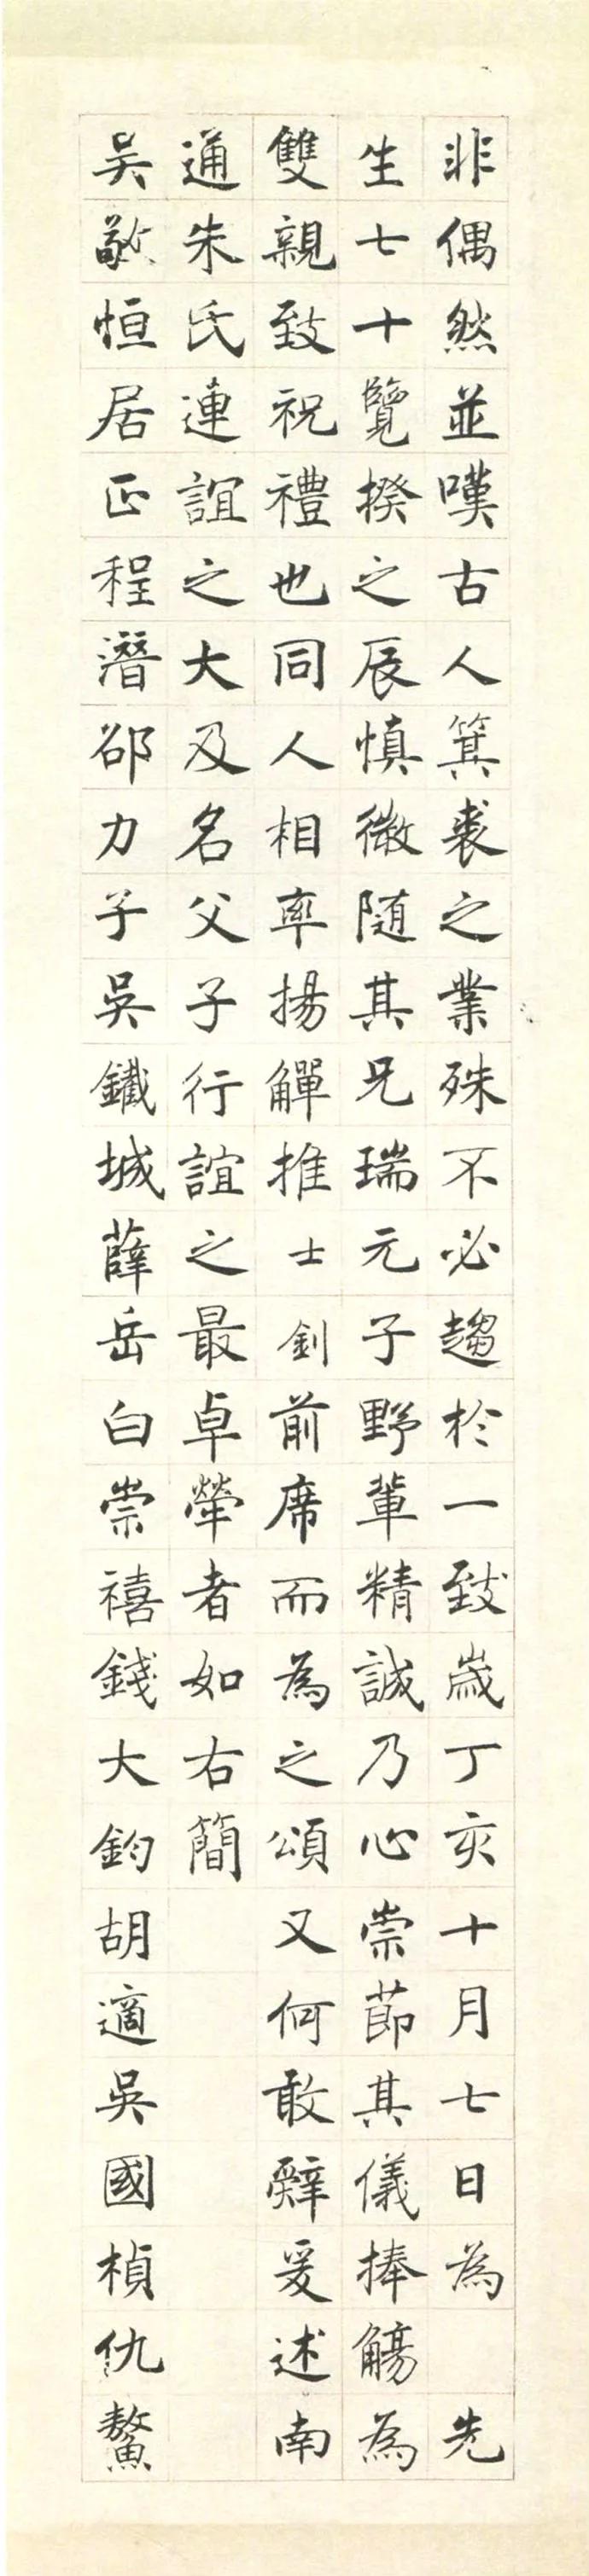 非偶然並嘆古人箕裘之業殊不必趨於一致歲丁亥十月七日為 先
生七十覽揆之辰慎微隨其兄瑞元子野輩精誠乃心崇節其儀捧觴為
雙親致祝禮也同人相率揚觶推士釗前席而為之頌又何敢辭爰述南
通朱氏連誼之大及名父子行誼之最卓犖者如右簡
吴敬恒居正程潛邵力子吳鐵城薛岳白崇禧錢大鈞胡適吳國楨仇鰲